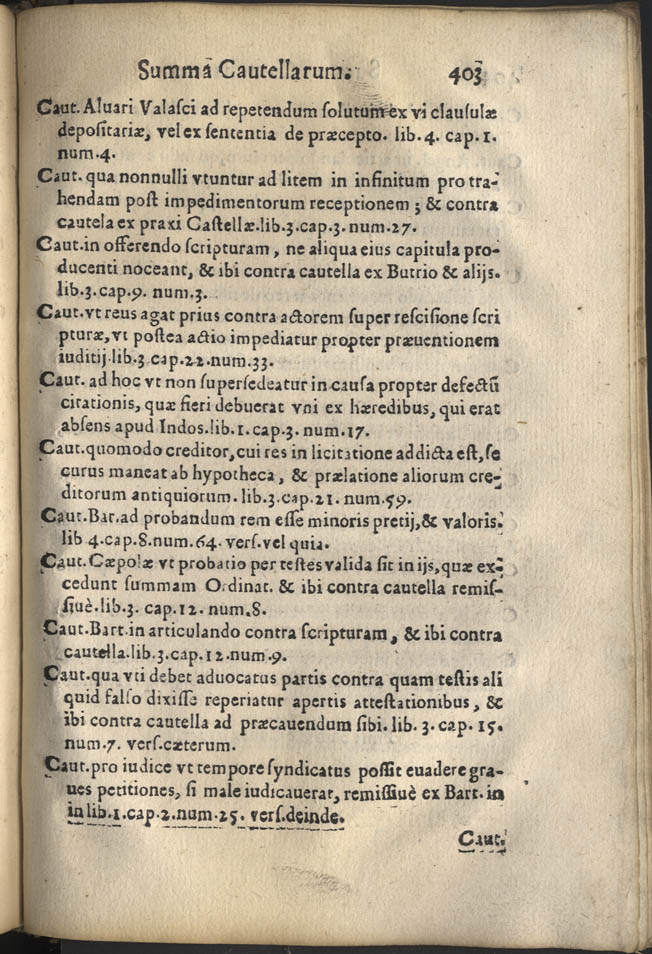 Summã Cautellarum. 403
Caut. Aluari Valasci ad repetendum solutum ex vi clausulæ
depositariæ, vel ex sententia de præcepto. lib. 4. cap. 1.
num. 4.
Caut. qua nonnulli vtuntur ad litem in infinitum pro tra-
hendam post impedimentorum receptionem; & contra
cautela ex praxi Castellæ. lib. 3. cap. 3. num. 27.
Caut. in offerendo scripturam, ne aliqua eius capitula pro-
ducenti noceant, & ibi contra cautella ex Butrio & alijs.
lib. 3. cap. 9. num. 3.
Caut. vt reus agat prius contra actorem super rescisione scri
pturæ, vt postea actio impediatur propter præuentionem
iuditij. lib. 3 cap. 22. num. 33.
Caut. ad hoc vt non supersedeatur in causa propter defectũ
citationis, quæ fieri debuerat vni ex hæredibus, qui erat
absens apud Indos. lib. 1. cap. 3. num. 17.
Caut. quomodo creditor, cui res in licitatione addicta est, se
curus maneat ab hypotheca, & prælatione aliorum cre-
ditorum antiquiorum. lib. 3. cap. 21. num. 59.
Caut. Bar. ad probandum rem esse minoris pretij, & valoris.
lib 4. cap. 8. num. 64. vers. vel quia.
Caut. Cæpolæ vt probatio per testes valida sit in ijs, quæ ex-
cedunt summam Ordinat. & ibi contra cautella remis-
siuè. lib. 3. cap. 12. num. 8.
Caut. Bart. in articulando contra scripturam, & ibi contra
cautella. lib. 3. cap. 12. num. 9.
Caut. qua vti debet aduocatus partis contra quam testis ali
quid falso dixisse reperiatur apertis attestationibus, &
ibi contra cautella ad præcauendum sibi. lib. 3. cap. 15.
num. 7. vers. cæterum.
Caut. pro iudice vt tempore syndicatus possit euadere gra-
ues petitiones, si male iudicauerat, remissiuè ex Bart. in
in lib. 1. cap. 2. num. 25. vers. deinde.
Caut.